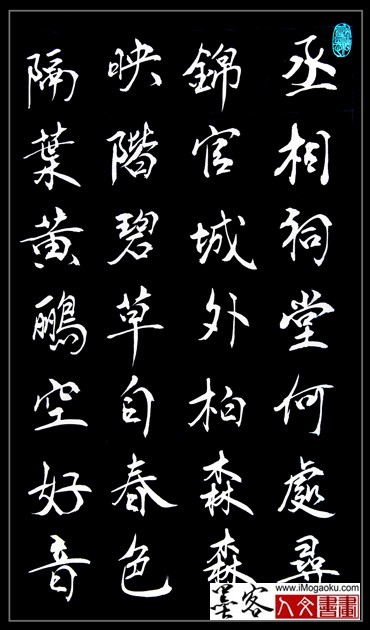 丞相祠堂何處尋
錦官城外柏森森
映階碧草自春色
隔葉黃鸝空好音
墨客
www.iMogaoku.com
人文書畫